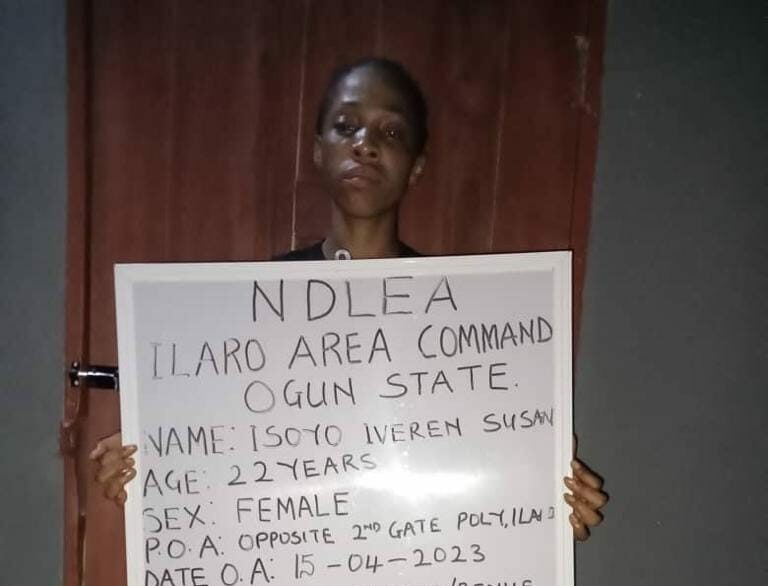 NDLEA
ILARO AREA COMMAND
OGUN STATE.
NAME: ISOYO IVEREN SUSAN
AGE: 22 YEARS
SEX: FEMALE
P.O.A: OPPOSITE 2ND GATE POLY,
DATE O.A: 15-04-2023